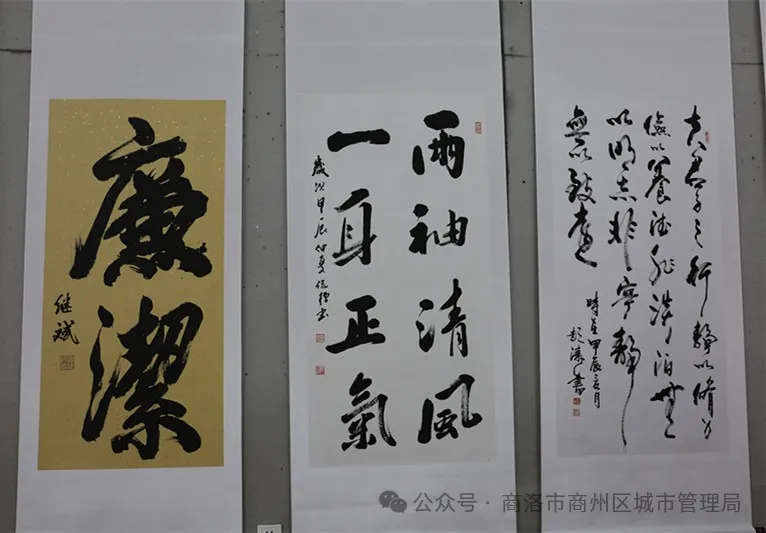 廉潔
继斌
兩袖清風
一身正氣
歲次甲辰仲夏書
夫君子之行靜以脩身
儉以養德非淡泊無
以明志非寧靜
無以致遠
時在甲辰月
書
公众号·商洛市商州区城市管理局